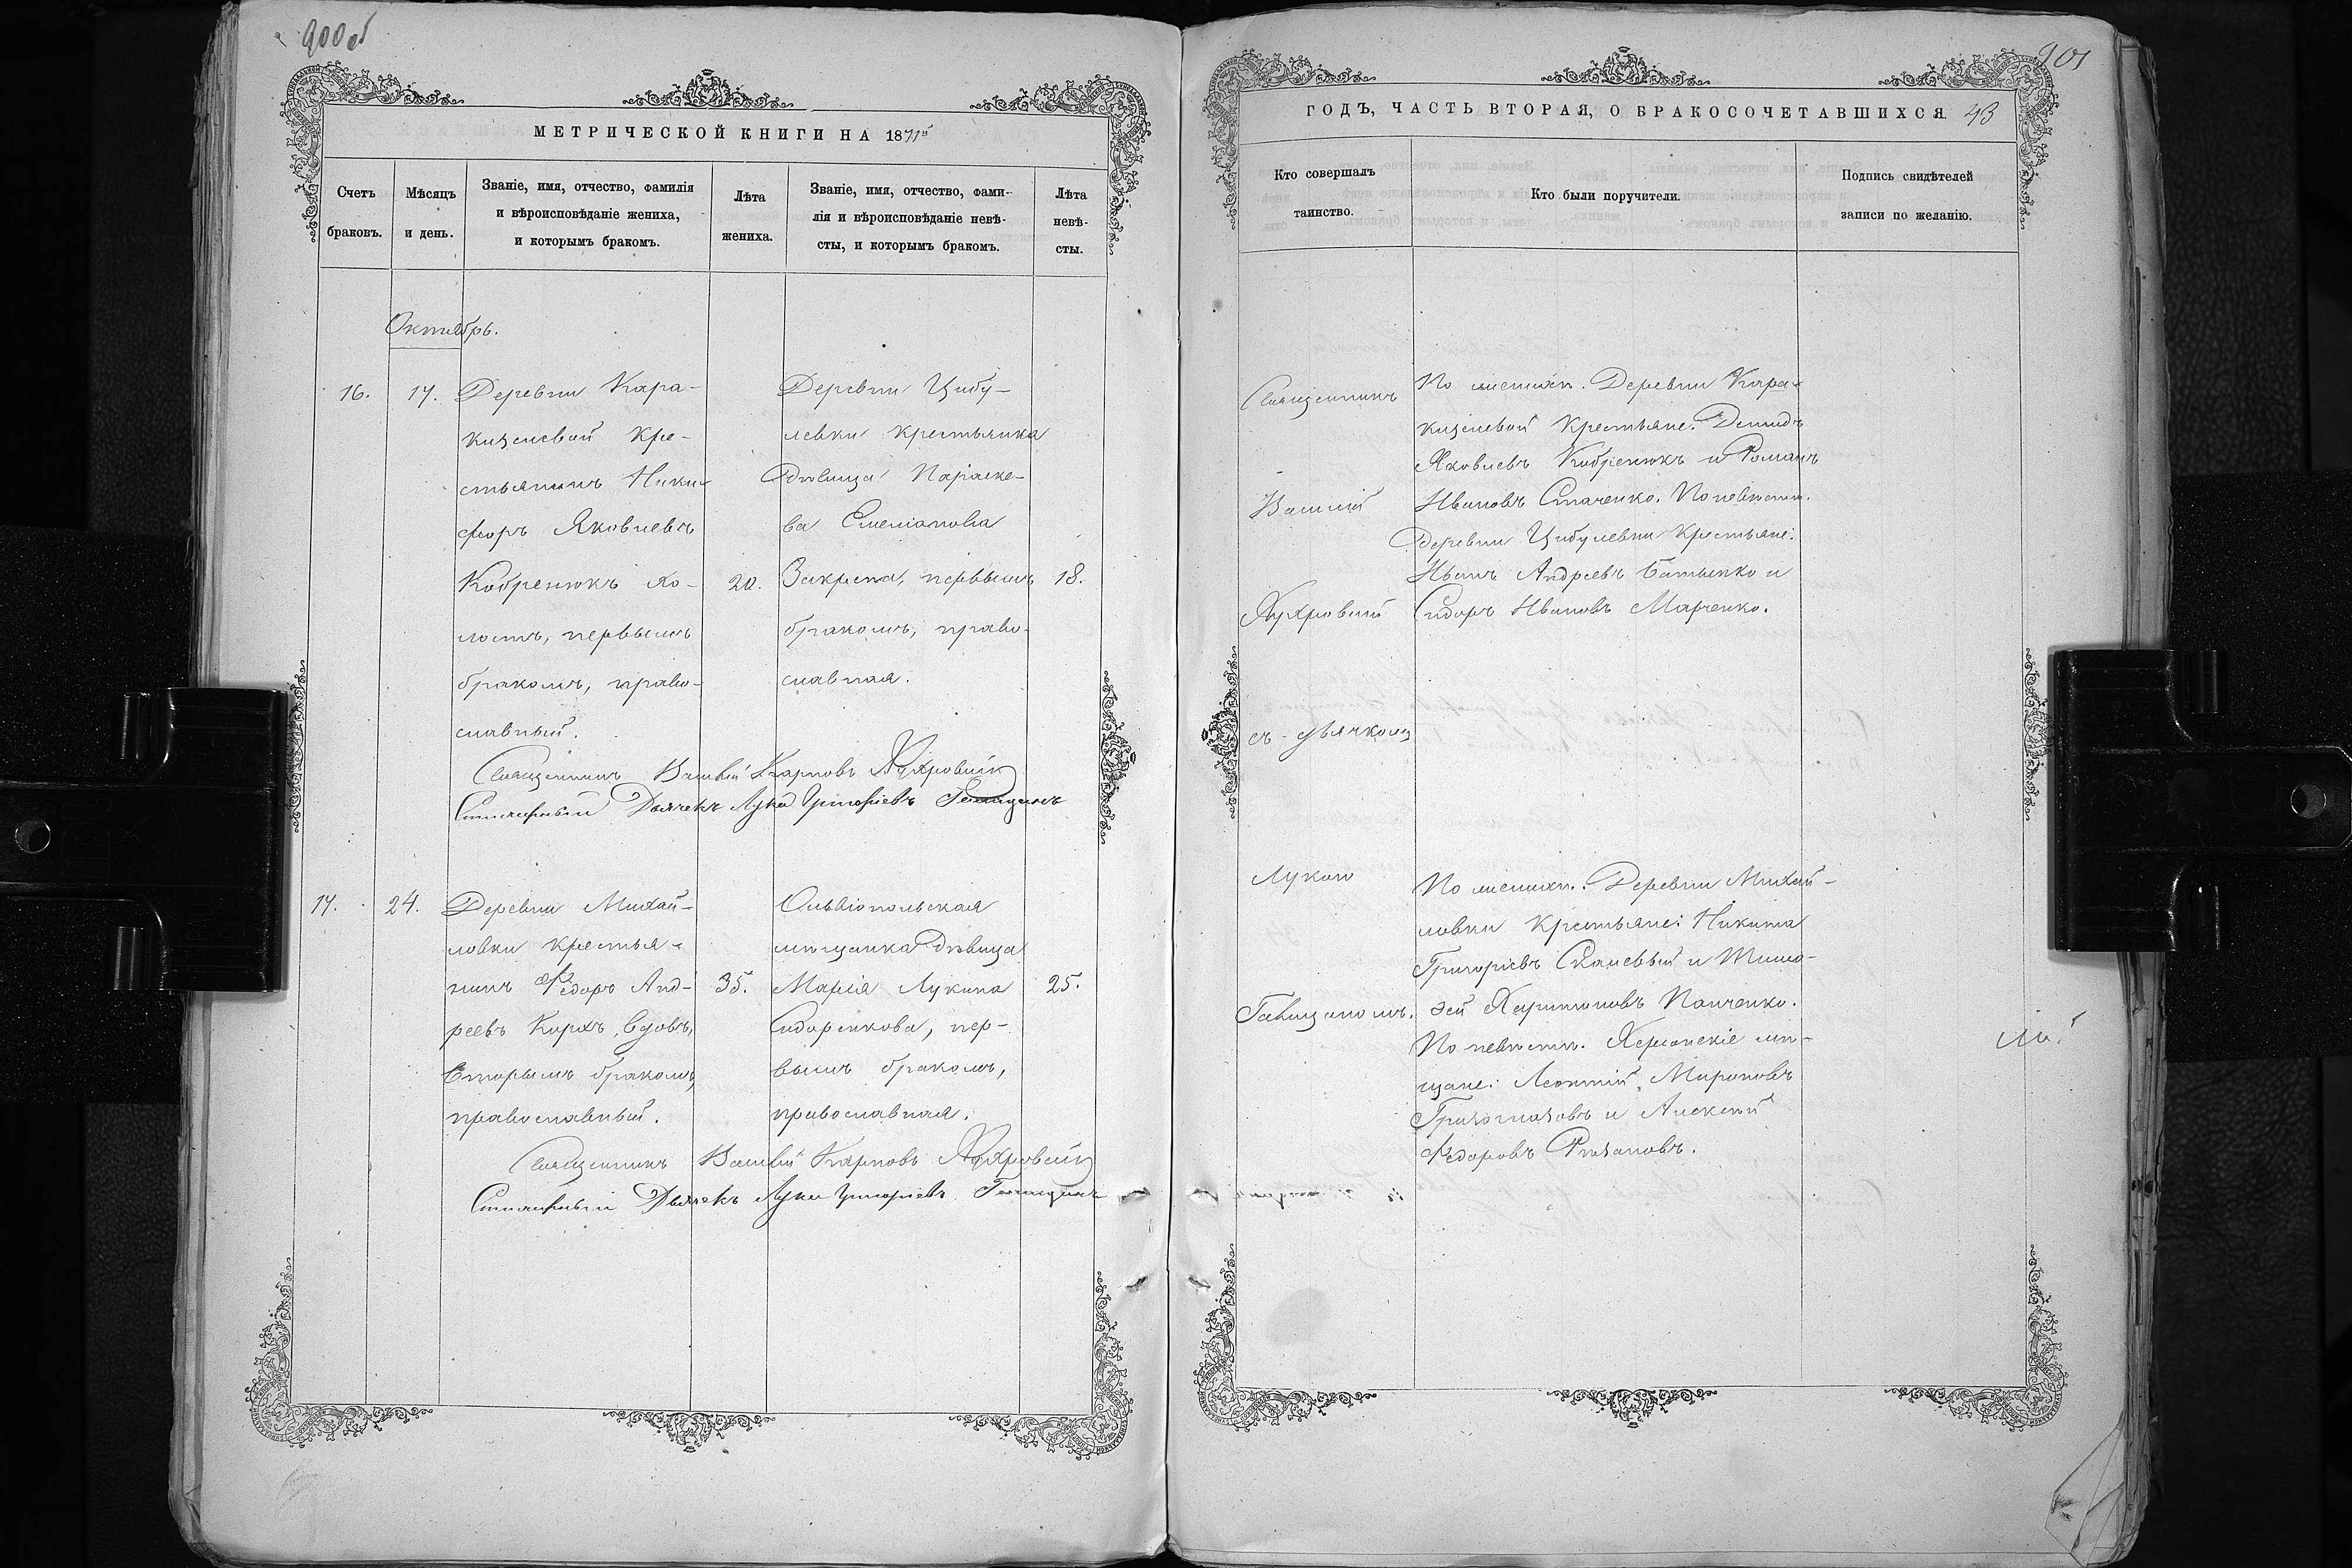 900 об
МЕТРИЧЕСКОЙ КНИГИ НА 1871й
Счетъ браковъ.
Мѣсяцъ и день.
Званіе, имя, отчество, фамилія
и вѣроисповѣданіе жениха,
и которымъ бракомъ.
Лѣта
жениха.
Званіе, имя, отчество, фами-
лія и вѣроисповѣданіе невѣ-
сты, и которымъ бракомъ.
Лѣта
невѣ-
сты.
Октябрь.
16.
17.
Деревни Кара-
кизелевой Кре-
стьянинъ Ники-
форъ Яковлевъ
Кобренюкъ хо-
лостъ, первымъ
бракомъ, право-
славный.
20.
Деревни Цибу-
левки крестьянка
Дѣвица Параске-
ва Емеліанова
Закрепа, первымъ
бракомъ, право-
славная.
18.
Священникъ Василій Карповъ
Дьячекъ Лука Григоріевъ
17.
24.
Деревни Михай-
ловки крестья-
нинъ Ѳедоръ Анд-
реевъ Коржъ, вдовъ,
вторымъ бракомъ,
православный.
35.
Ольвіопольская
мѣщанка Дѣвица
Марія Лукина
Сидоренкова, пер-
вымъ бракомъ,
православная.
25.
Священникъ Василій Карповъ
Дьячекъ Лука Григоріевъ
901
ГОДЪ, ЧАСТЬ ВТОРАЯ, О БРАКОСОЧЕТАВШИХСЯ. 43
Кто совершалъ
таинство.
Кто были поручители.
Подпись свидѣтелей
записи по желанію.
Священникъ
Василій
съ дьячкомъ
Лукою
По женихѣ. Деревни Кара-
кизелевой Крестьяне: Демидъ
Яковлевъ Кобренюкъ и Романъ
Ивановъ Стаченко. По невѣстѣ.
Деревни Цибулевки Крестьяне:
Иванъ Андреевъ Батенко и
Сидоръ Ивановъ Марченко.
По женихѣ. Деревни Михай-
ловки Крестьяне: Никита
Григоріевъ и Тимо-
ѳей Харитоновъ Панченко.
По невѣстѣ. Херсонскіе мѣ-
щане: Леонтій Мироновъ
и Алексѣй
Ѳедоровъ Рязановъ.